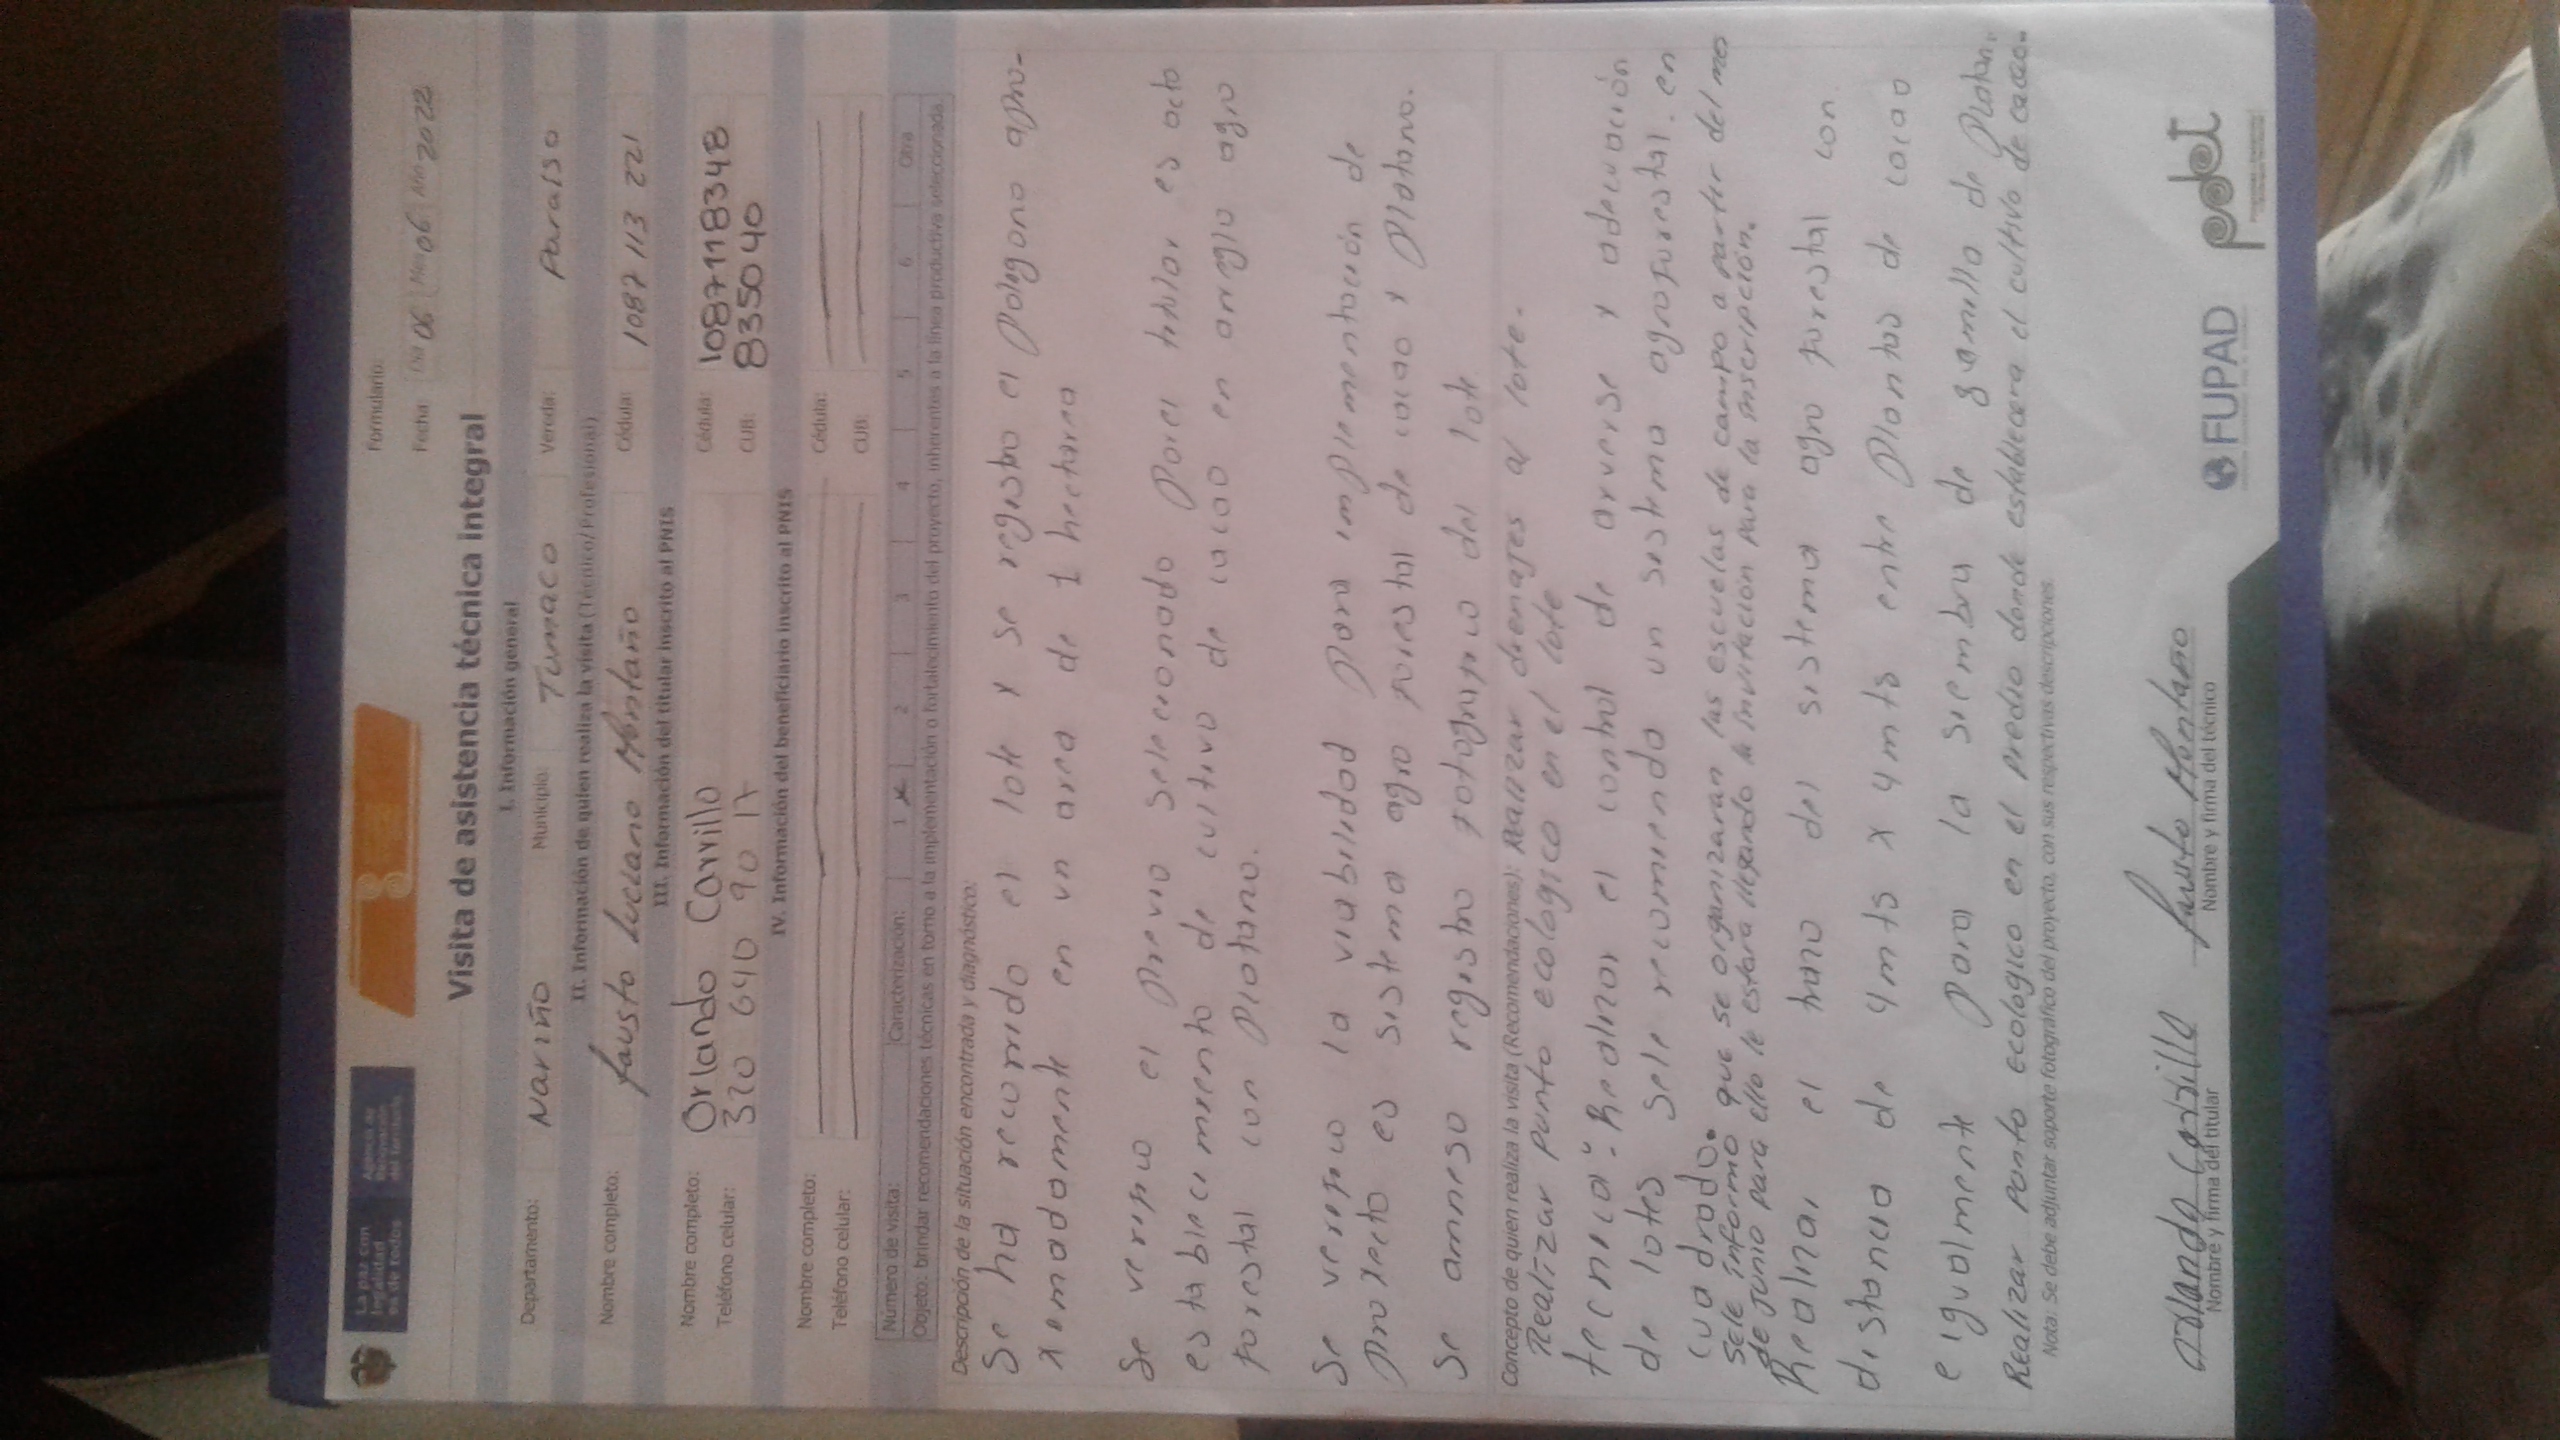 La paz con legalidad es de todos
Agencia de Renovación del Territorio
Formulario:
Fecha: Día 06 Mes 06 Año 2022
Visita de asistencia técnica integral
I. Información general
Departamento: Nariño Municipio: Tumaco Vereda: Paraíso
II. Información de quien realiza la visita (Técnico/Profesional)
Nombre completo: Fausto Luciano Montaño Cédula: 1087 113 221
III. Información del titular inscrito al PNIS
Nombre completo: Orlando Carvillo Cédula: 1087118348
Teléfono celular: 320 640 90 17 CUB: 8355040
IV. Información del beneficiario inscrito al PNIS
Nombre completo: Cédula:
Teléfono celular: CUB:
Número de visita: Caracterización: 1 x 2 3 4 5 6 Otra
Objeto: brindar recomendaciones técnicas en torno a la implementación o fortalecimiento del proyecto, inherentes a la línea productiva seleccionada.
Descripción de la situación encontrada y diagnóstico:
Se ha recorrido el lote y se registro el poligono apro-
ximadamente en un area de 1 hectarea
Se verifico el previo selecionado por el titular es acto
establecimiento de cultivo de cacao en arreglo agro
forestal con platano.
Se verifico la viabilidad para implementación de
proyecto es sistema agro forestal de cacao y platano.
Se anneso registro fotografico del lote
Concepto de quien realiza la visita (Recomendaciones): Realizar drenajes al lote.
Realizar punto ecologico en el lote
tecnica. Realizar el control de arverse y adecuación
de lotes sele recomienda un sistema agroforestal. en
cuadrado.
Sele informo que se organizaran las escuelas de campo a partir del mes
de junio para ello le estara llegando la invitación para la inscripción.
Realizar el trazo del sistema agro forestal con.
distancia de 4 mts x 4 mts entre plantas de cacao
e igualmente para la siembra de semilla de platano
Realizar punto ecologico en el predio donde establecera el cultivo de cacao.
Nota: Se debe adjuntar soporte fotográfico del proyecto, con sus respectivas descripciones.
Fausto Montaño
Nombre y firma del titular Nombre y firma del técnico
FUPAD pdet